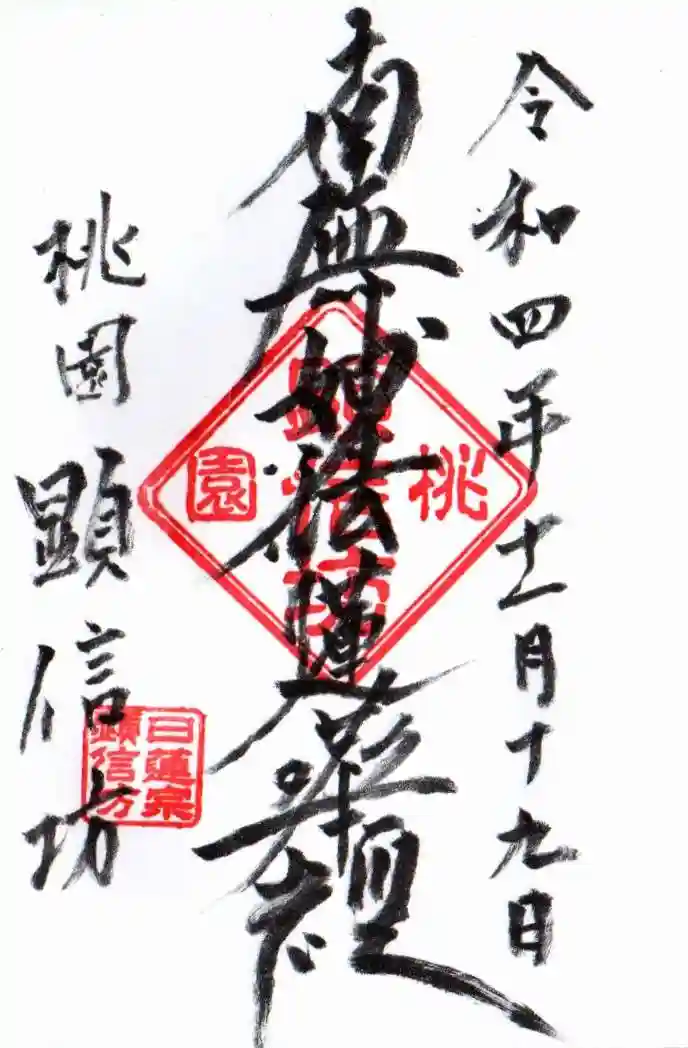 令和四年十一月十九日
南無妙法蓮華経
桃園
顕信坊
桃園
日蓮宗
顕信坊